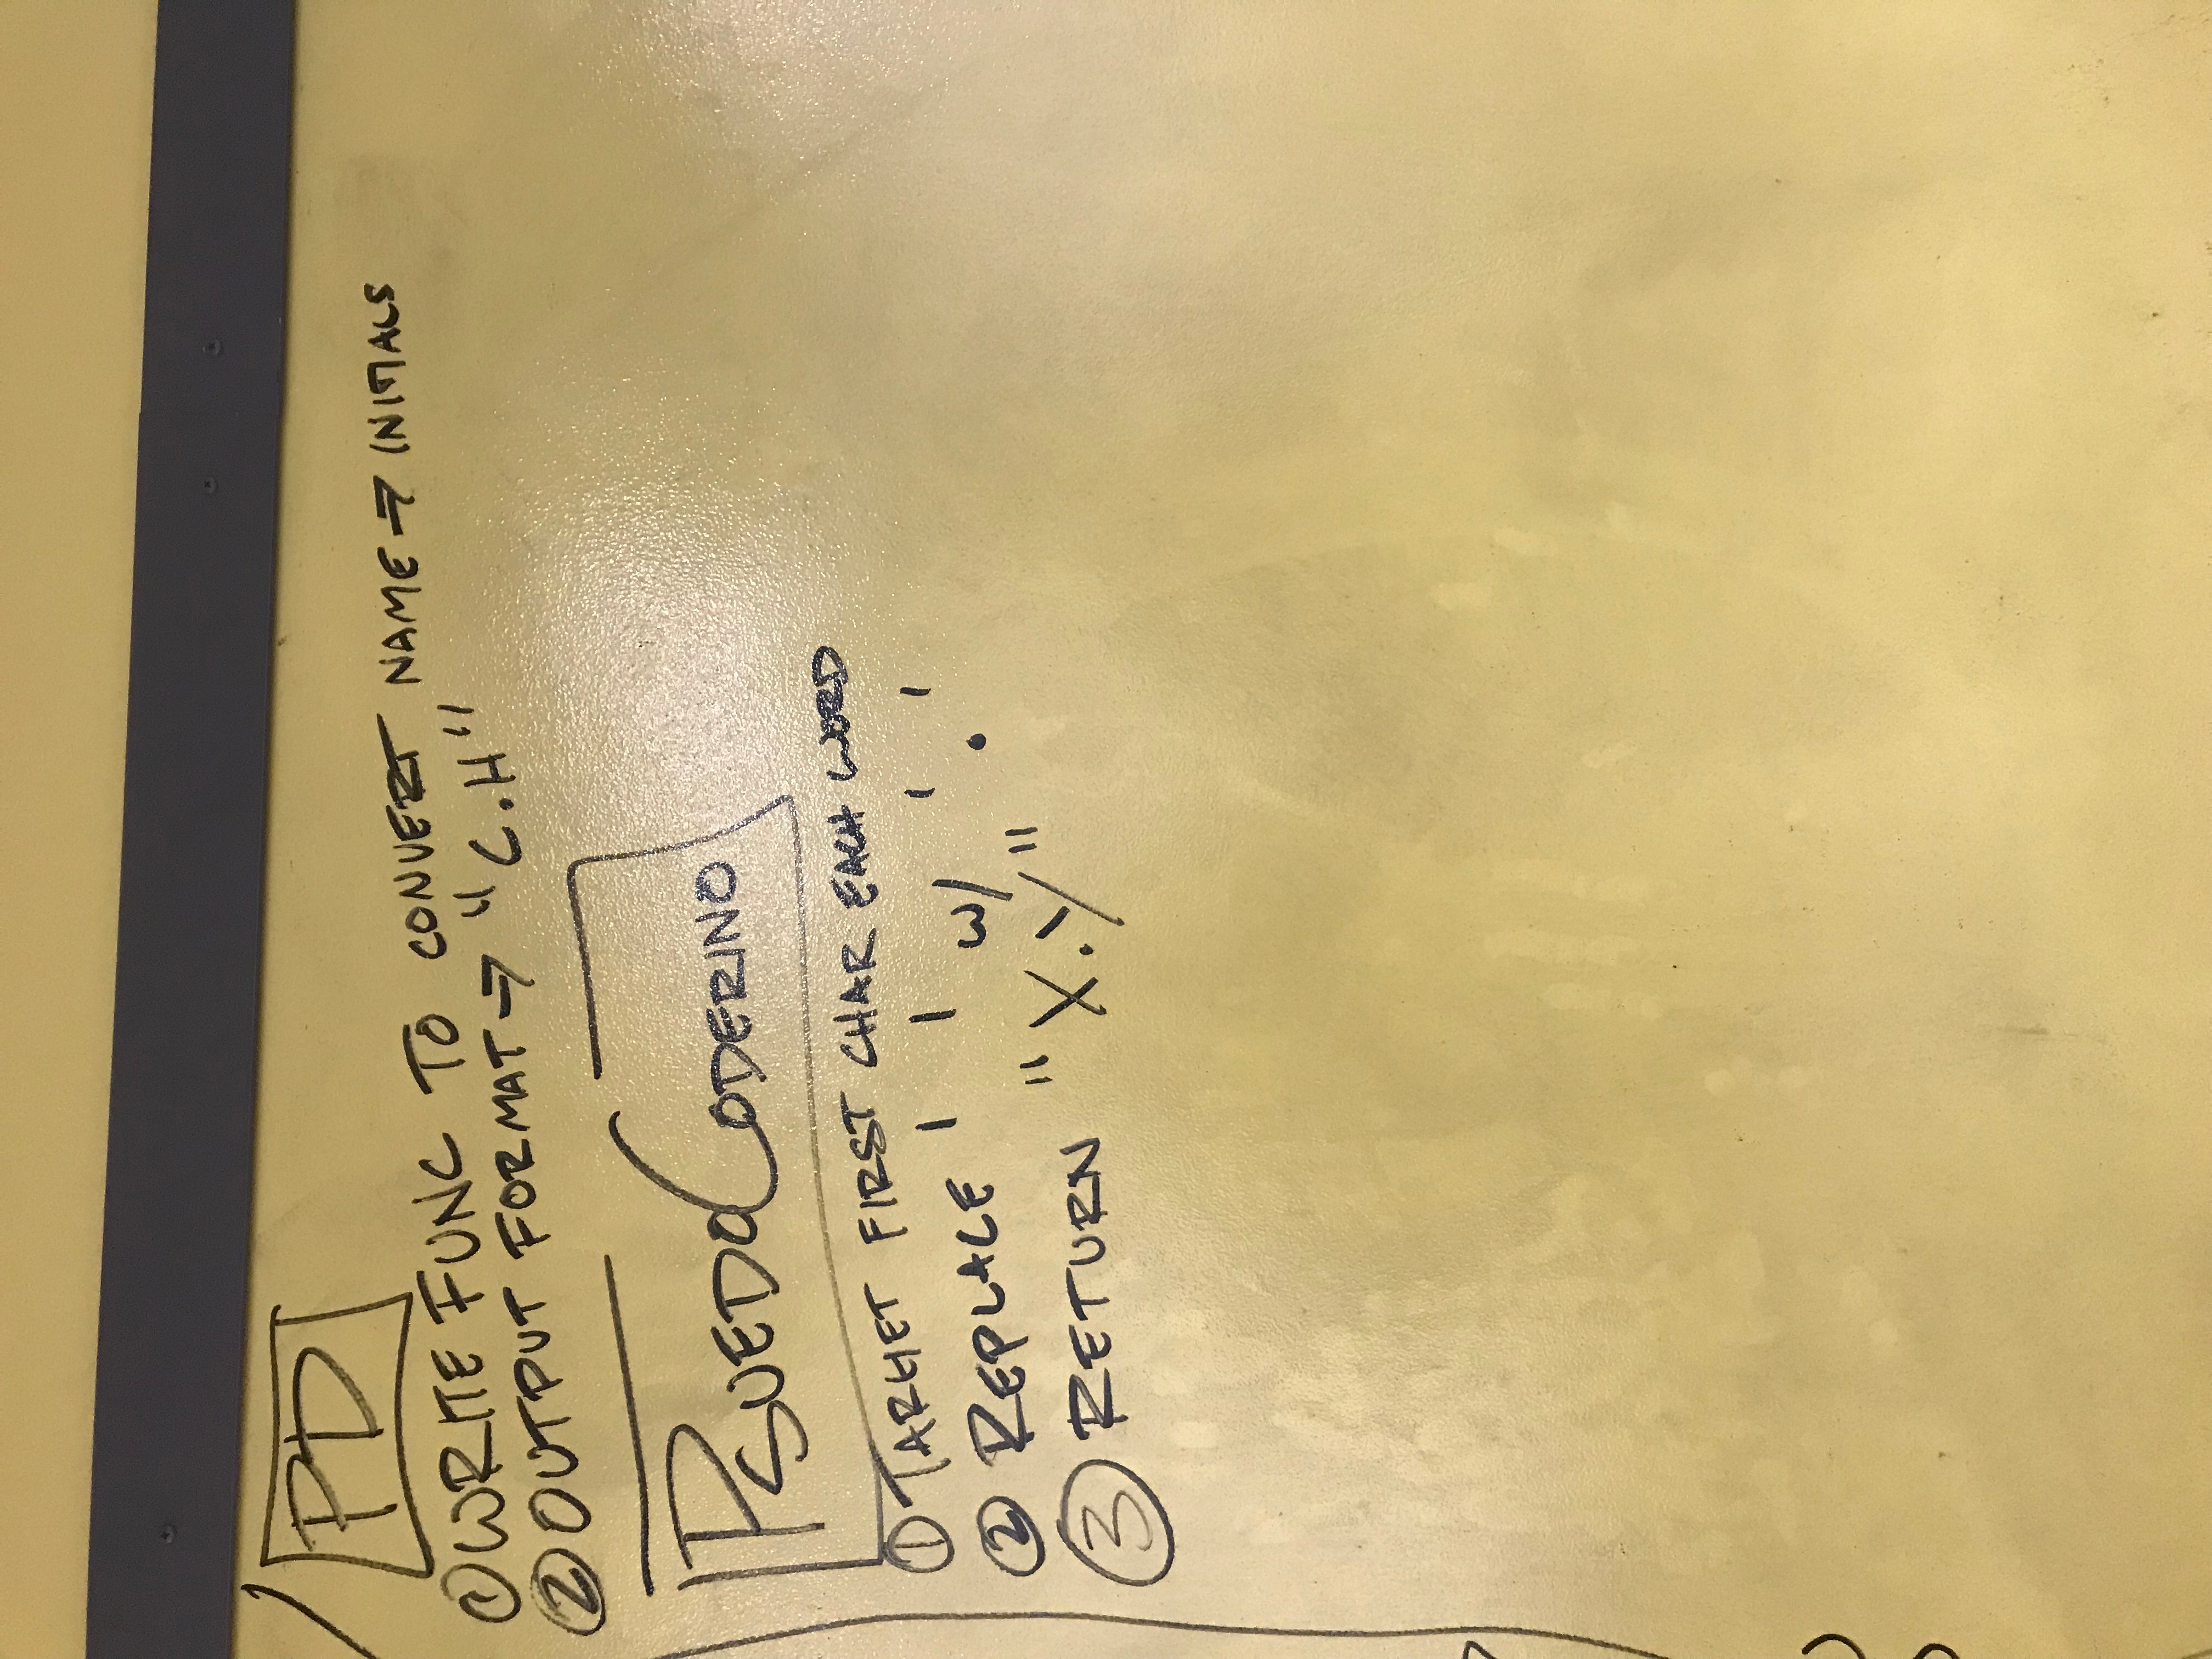 PD
① WRITE FUNC TO CONVERT NAME → INITIALS
② OUTPUT FORMAT → "C.H"
PSUEDOCODERINO
① TARGET FIRST CHAR EACH WORD
② REPLACE ' ' W/ '.'
③ RETURN "X.Y"